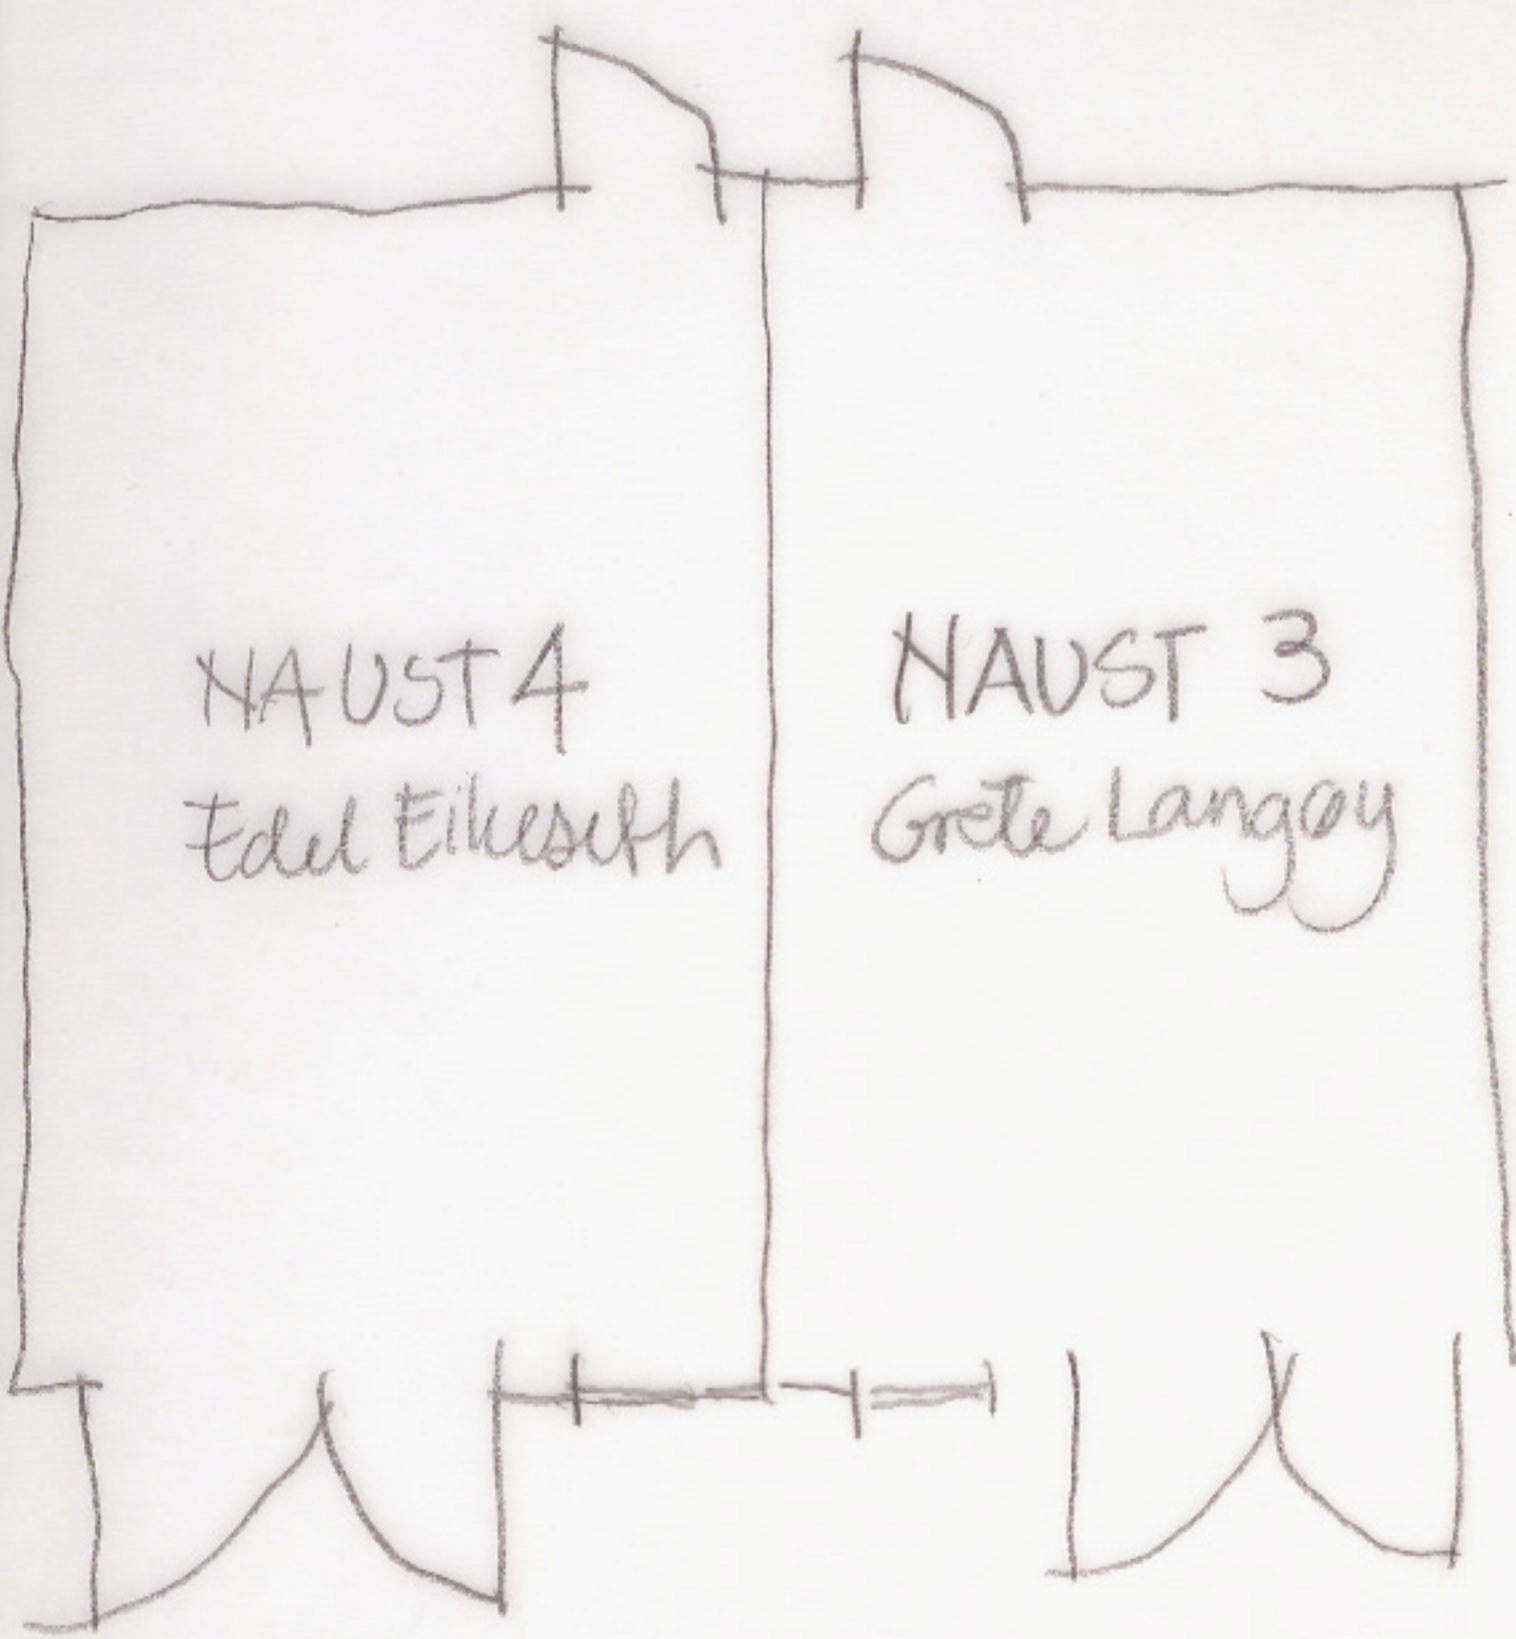 NAUST 4
Edel Eikeseth
NAUST 3
Grete Langøy